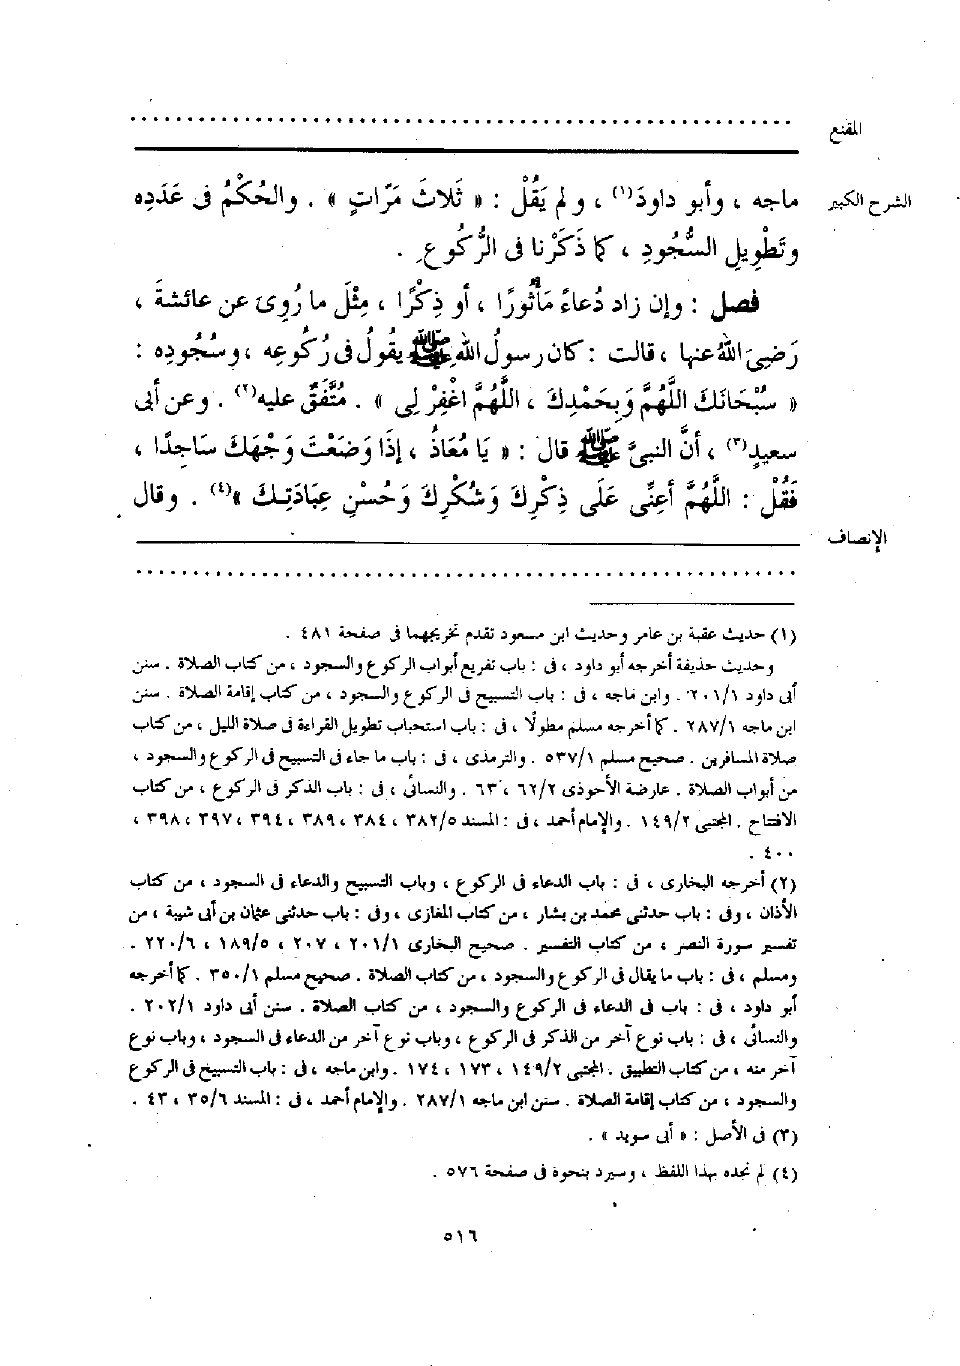 المقنع
الشرح الكبير
ماجه ، وأبو داودَ(١) ، ولم يَقُلْ : « ثَلَاثَ مَرّاتٍ » . والحُكْمُ فى عَدَدِه
وتَطْوِيلِ السُّجُودِ ، كما ذَكَرْنا فى الرُّكُوعِ .
فصل : وإن زاد دُعاءً مَأْثُورًا ، أو ذِكْرًا ، مِثْلَ ما رُوِىَ عن عائشةَ ،
رَضِىَ اللهُ عنها ، قالت : كان رسولُ اللهِ ﷺ يقُولُ فى رُكُوعِه ، وسُجُودِه :
« سُبْحَانَكَ اللَّهُمَّ وَبِحَمْدِكَ ، اللَّهُمَّ اغْفِرْ لِى » . مُتَّفَقٌ عليه(٢) . وعن أبى
سعيدٍ(٣) ، أنَّ النبىَّ ﷺ قال : « يَا مُعَاذُ ، إذَا وَضَعْتَ وَجْهَكَ سَاجِدًا ،
فَقُلْ : اللَّهُمَّ أعِنِّى عَلَى ذِكْرِكَ وَشُكْرِكَ وَحُسْنِ عِبَادَتِكَ »(٤) . وقال
الإنصاف
(١) حديث عقبة بن عامر وحديث ابن مسعود تقدم تخريجهما فى صفحة ٤٨١ .
وحديث حذيفة أخرجه أبو داود ، فى : باب تفريع أبواب الركوع والسجود ، من كتاب الصلاة . سنن
أبى داود ٢٠١/١ . وابن ماجه ، فى : باب التسبيح فى الركوع والسجود ، من كتاب إقامة الصلاة . سنن
ابن ماجه ٢٨٧/١ . كما أخرجه مسلم مطولًا ، فى : باب استحباب تطويل القراءة فى صلاة الليل ، من كتاب
صلاة المسافرين . صحيح مسلم ٥٣٧/١ . والترمذى ، فى : باب ما جاء فى التسبيح فى الركوع والسجود ،
من أبواب الصلاة . عارضة الأحوذى ٦٢/٢ ، ٦٣ . والنسائى ، فى : باب الذكر فى الركوع ، من كتاب
الافتتاح . المجتبى ١٤٩/٢ . والإمام أحمد ، فى : المسند ٣٨٢/٥ ، ٣٨٤ ، ٣٨٩ ، ٣٩٤ ، ٣٩٧ ، ٣٩٨ ،
٤٠٠ .
(٢) أخرجه البخارى ، فى : باب الدعاء فى الركوع ، وباب التسبيح والدعاء فى السجود ، من كتاب
الأذان ، وفى : باب حدثنى محمد بن بشار ، من كتاب المغازى ، وفى : باب حدثنى عثمان بن أبى شيبة ، من
تفسير سورة النصر ، من كتاب التفسير . صحيح البخارى ٢٠١/١ ، ٢٠٧ ، ١٨٩/٥ ، ٢٢٠/٦ .
ومسلم ، فى : باب ما يقال فى الركوع والسجود ، من كتاب الصلاة . صحيح مسلم ٣٥٠/١ . كما أخرجه
أبو داود ، فى : باب فى الدعاء فى الركوع والسجود ، من كتاب الصلاة . سنن أبى داود ٢٠٢/١ .
والنسائى ، فى : باب نوع آخر من الذكر فى الركوع ، وباب نوع آخر من الدعاء فى السجود ، وباب نوع
آخر منه ، من كتاب التطبيق . المجتبى ١٤٩/٢ ، ١٧٣ ، ١٧٤ . وابن ماجه ، فى : باب التسبيح فى الركوع
والسجود ، من كتاب إقامة الصلاة . سنن ابن ماجه ٢٨٧/١ . والإمام أحمد ، فى : المسند ٣٥/٦ ، ٤٣ .
(٣) فى الأصل : « أبى سويد » .
(٤) لم نجده بهذا اللفظ ، وسيرد بنحوه فى صفحة ٥٧٦ .
٥١٦